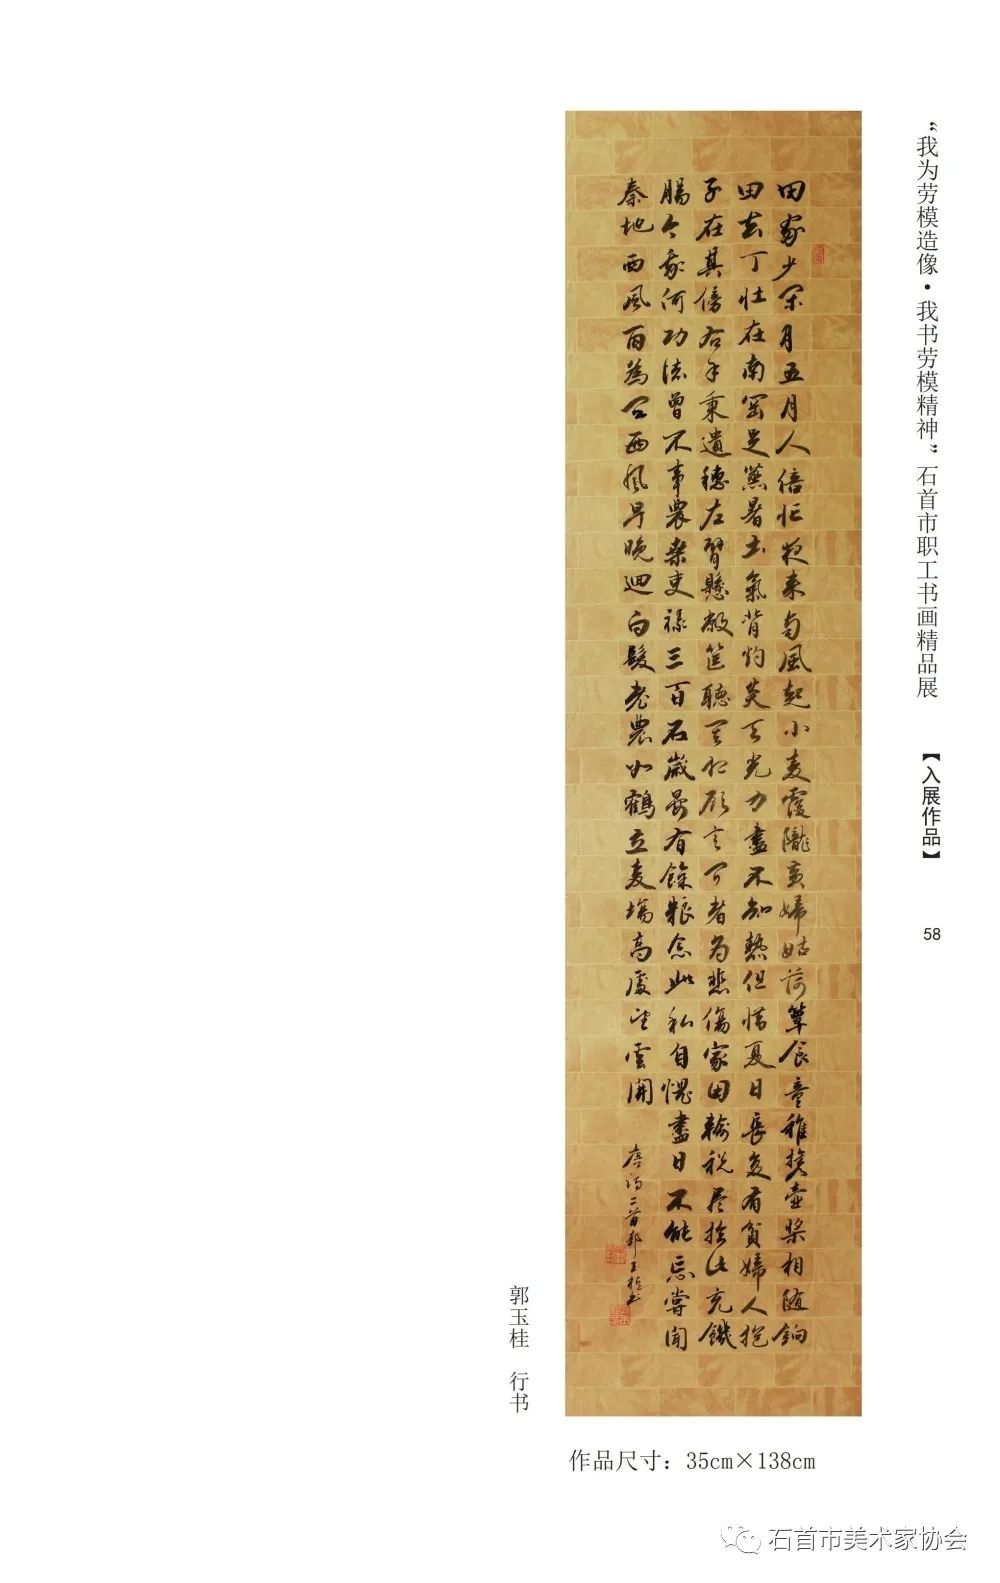 “我为劳模造像·我书劳模精神”石首市职工书画精品展
【入展作品】
58
田家少閑月五月人倍忙夜来南風起小麦覆隴黄婦姑荷簞食童稚携壺漿相随餉
田去丁壮在南岡足蒸暑土氣背灼炎天光力盡不知熱但惜夏日長复有貧婦人抱
子在其傍右手秉遺穗左臂懸敝筐聽其相顧言聞者為悲傷家田輸税尽拾此充饑
腸今我何功德曾不事農桑吏禄三百石歲晏有餘粮念此私自愧盡日不能忘嘗聞
秦地西風雨為問西風早晚迴白髮老農如鶴立麦場高處望雲開
唐詩二首郭玉桂书
郭玉桂 行书
作品尺寸：35cm×138cm
石首市美术家协会